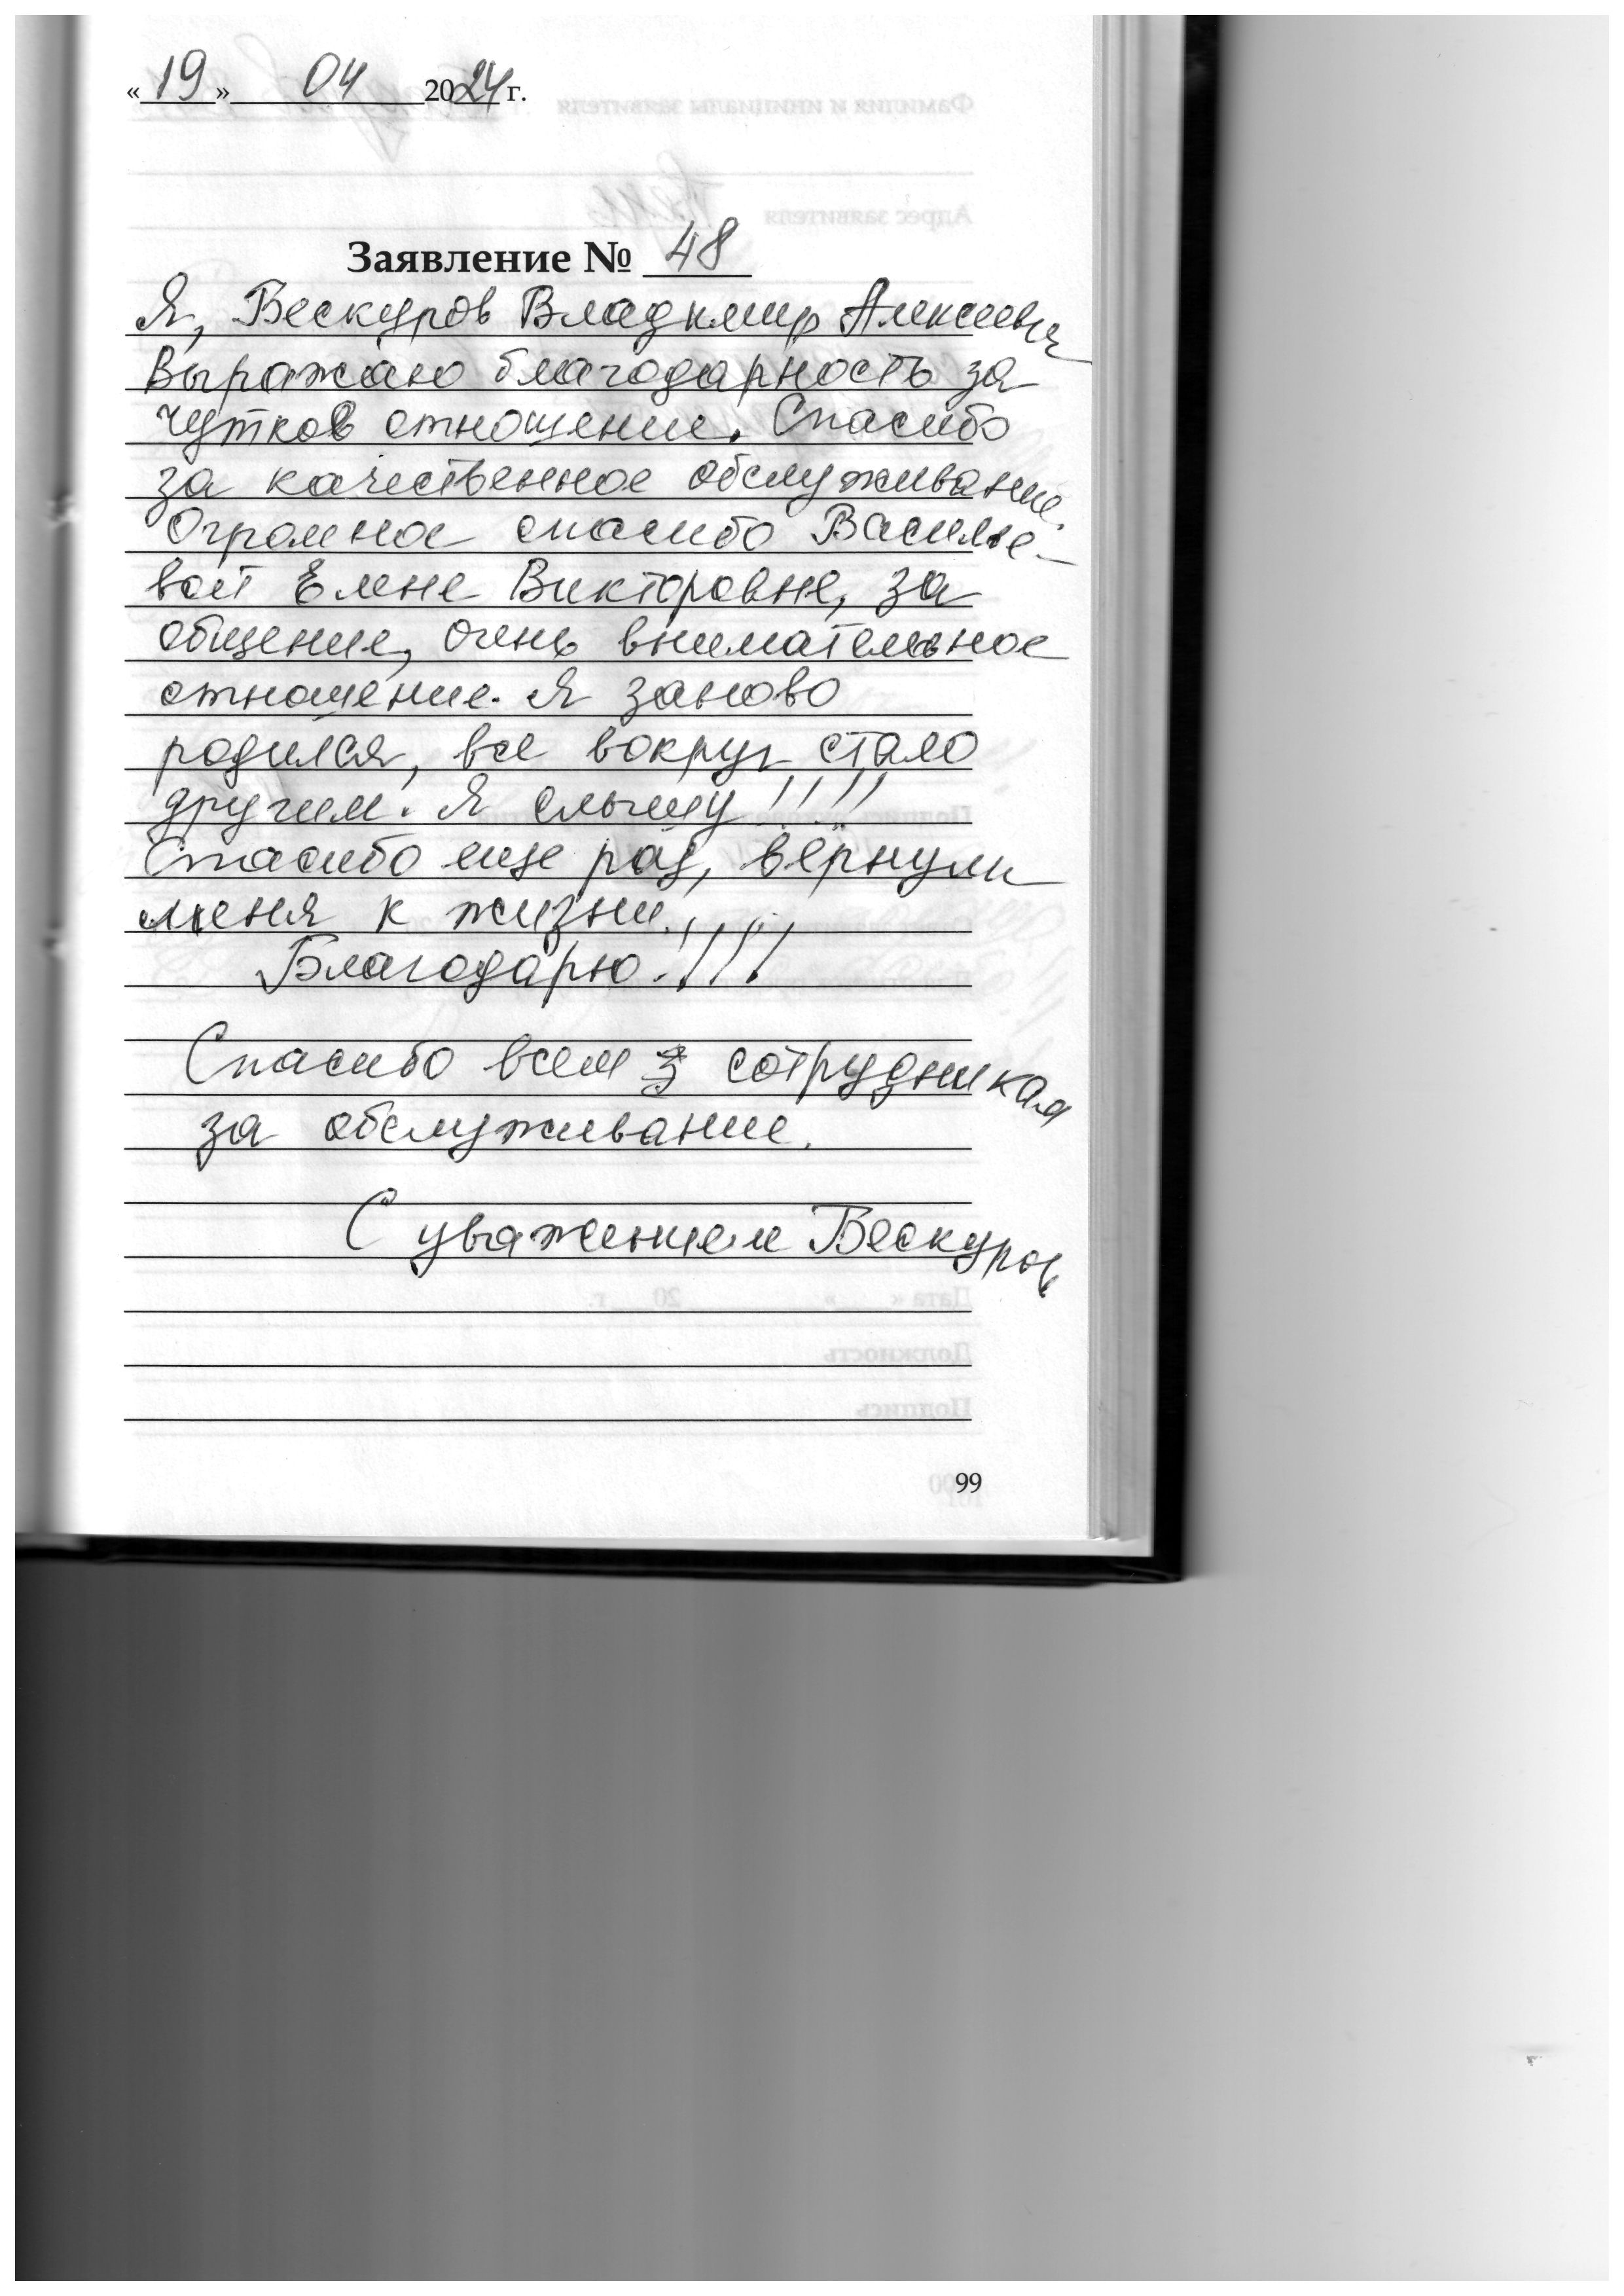 «19» 04 2024 г.
Заявление № 48
Я, Бескуров Владимир Алексеевич
Выражаю благодарность за
чуткое отношение. Спасибо
за качественное обслуживание.
Огромное спасибо Василье-
вой Елене Викторовне, за
общение, очень внимательное
отношение. Я заново
родился, все вокруг стало
другим. Я слышу !!!!
Спасибо еще раз, вернули
меня к жизни.
Благодарю.!!!!
Спасибо всем сотрудникам
за обслуживание.
С уважением Бескуров
99